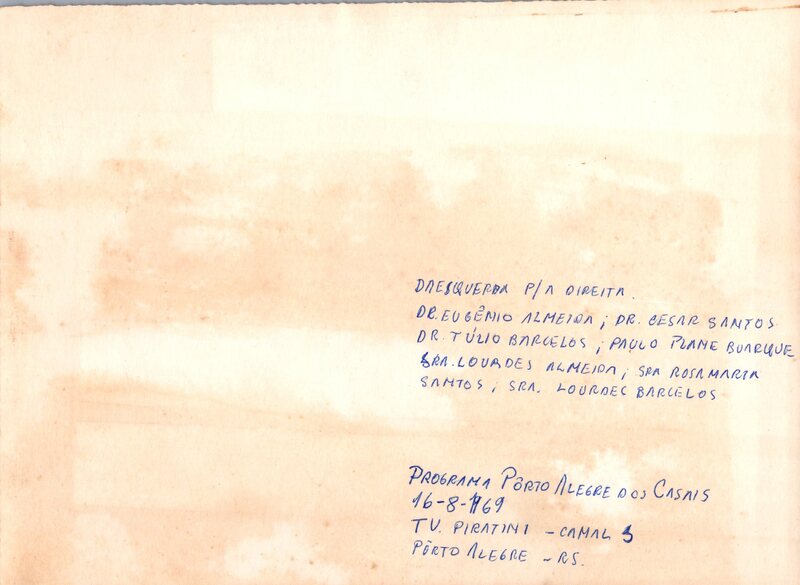 DAESQUERDA P/A DIREITA.
DR. EUGÊNIO ALMEIDA; DR. CESAR SANTOS
DR. TÚLIO BARCELOS; PAULO PLANE BUARQUE
SRA. LOURDES ALMEIDA; SRA ROSAMARIA
SANTOS; SRA. LOURDES BARCELOS
PROGRAMA PÔRTO ALEGRE DOS CASAIS
16-8-1969
TV. PIRATINI - CANAL 5
PÔRTO ALEGRE - RS.